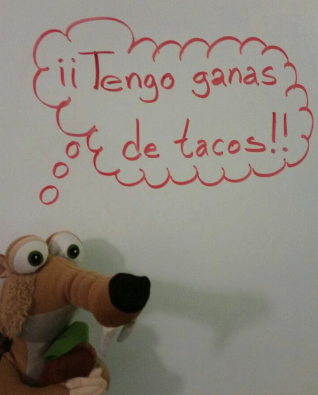 ¡¡Tengo ganas
de tacos!!